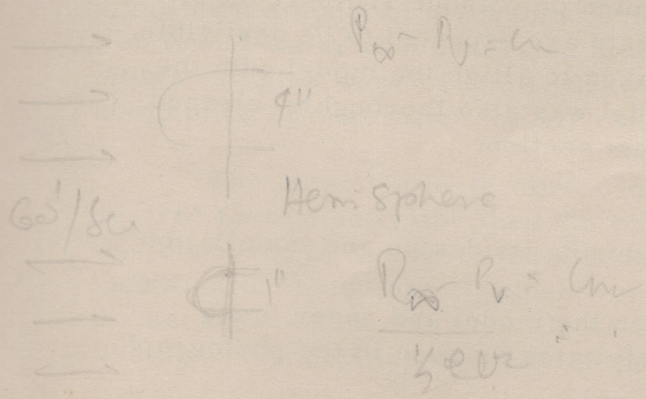 P∞ - Pv = Cm
4"
Hemisphere
60'/Sec
1"
P∞ - Pv = Cm
½ρv²